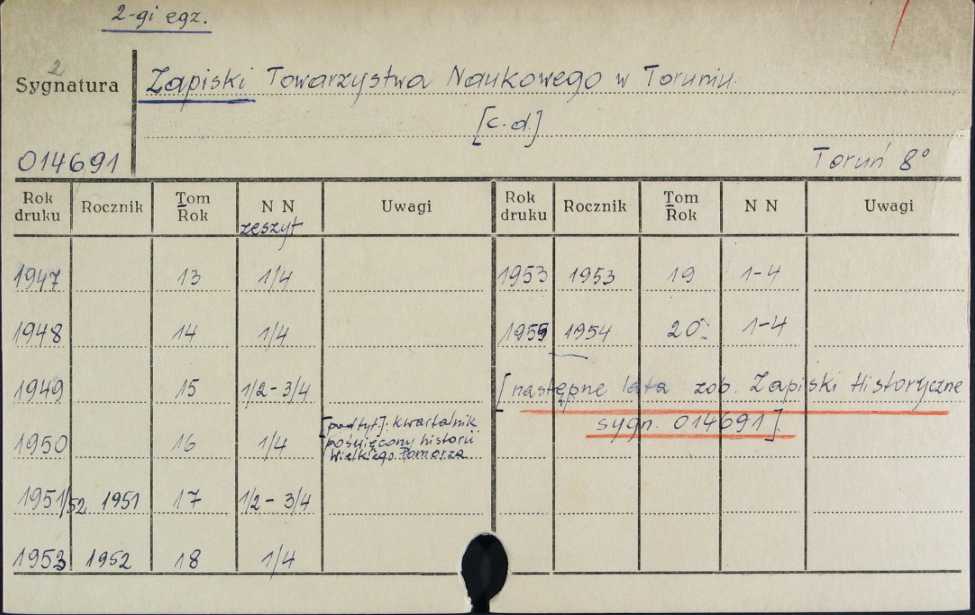 2-gi egz.
2
Sygnatura Zapiski Towarzystwa Naukowego w Toruniu.
[c.d.]
014691 Toruń 8°
Rok druku Rocznik Tom Rok N N zeszyt Uwagi Rok druku Rocznik Tom Rok N N Uwagi
1947 13 1/4 1953 1953 19 1-4
1948 14 1/4 1955 1954 20: 1-4
1949 15 1/2 - 3/4 [następne lata zob. Zapiski Historyczne
sygn. 014691].
1950 16 1/4 [podtyt]. Kwartalnik
poświęcony historii
Wielkiego Pomorza
1951/52 1951 17 1/2 - 3/4
1953 1952 18 1/4